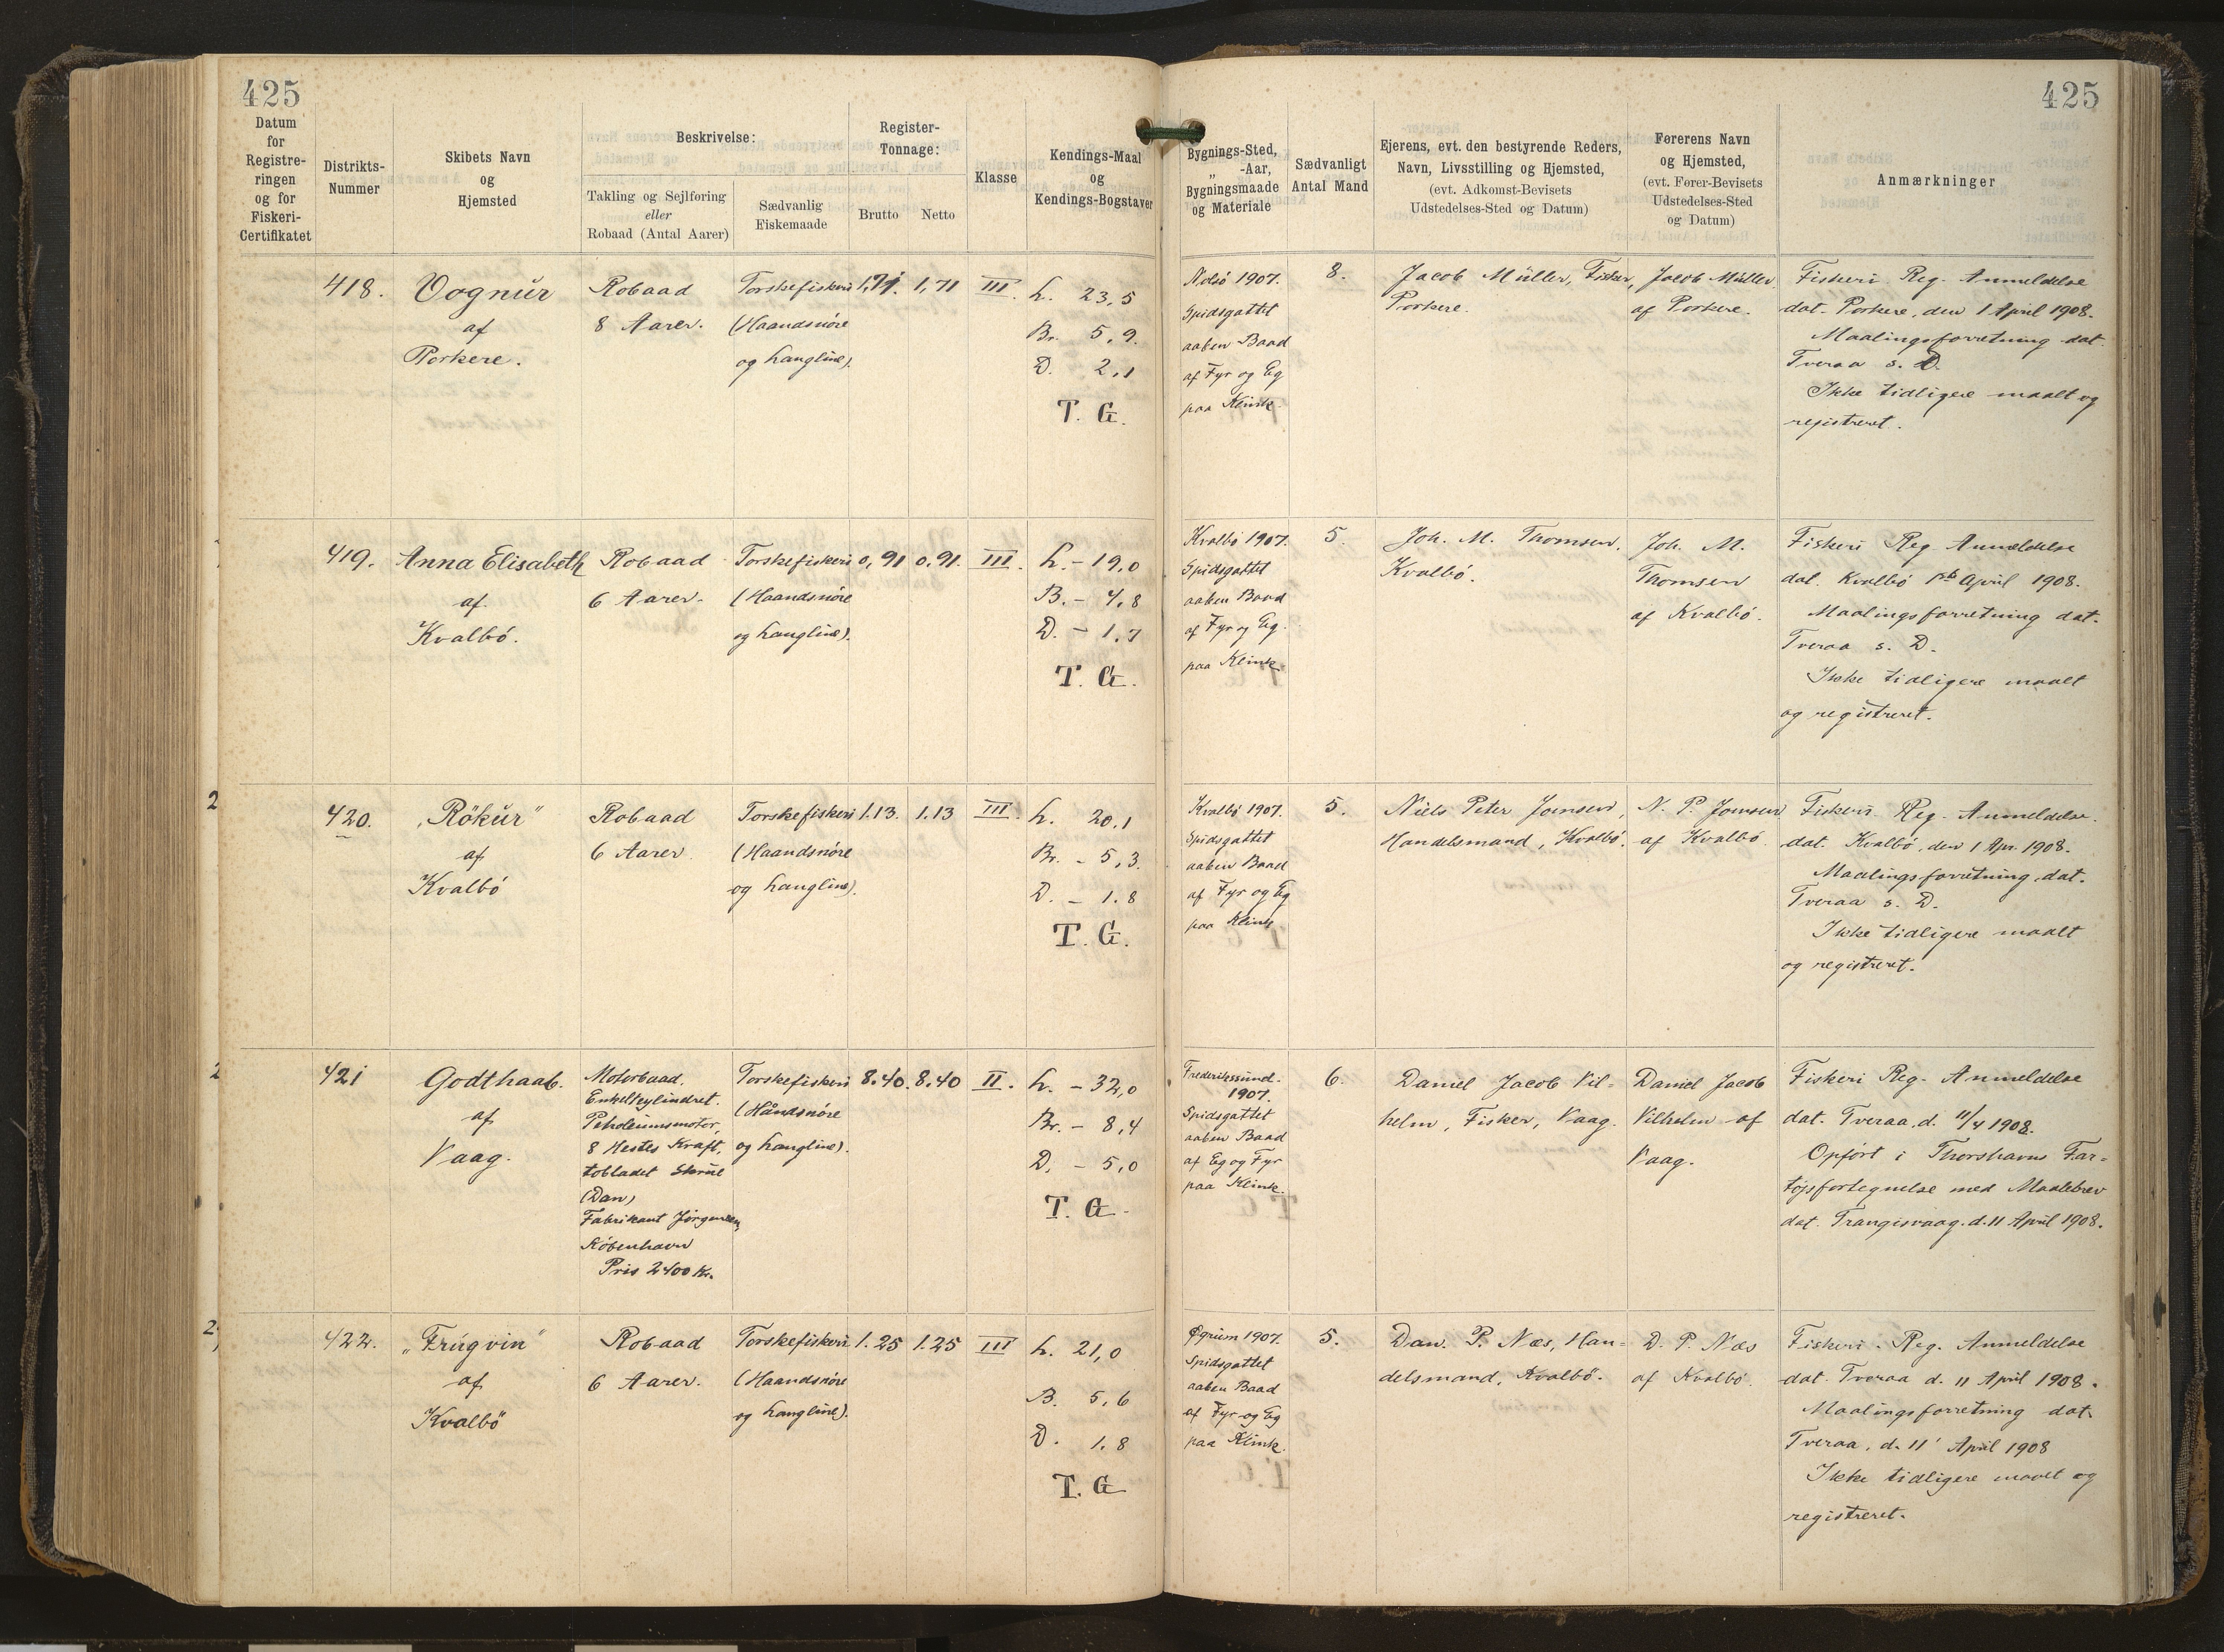 425
425
Datum for Registreringen og for Fiskeri-Certifikatet
Distrikts-Nummer
Skibets Navn og Hjemsted
Beskrivelse:
Takling og Sejlføring eller Robaad (Antal Aarer)
Sædvanlig Fiskemaade
Register-Tonnage:
Brutto
Netto
Klasse
Kendings-Maal og Kendings-Bogstaver
Bygnings-Sted, „ -Aar, Bygningsmaade og Materiale
Sædvanligt Antal Mand
Ejerens, evt. den bestyrende Reders, Navn, Livsstilling og Hjemsted, (evt. Adkomst-Bevisets Udstedelses-Sted og Datum)
Førerens Navn og Hjemsted, (evt. Fører-Bevisets Udstedelses-Sted og Datum)
Anmærkninger
418.
Vognür
af
Porkere.
Robaad
8 Aarer.
Torskefiskeri
(Haandsnøre
og Langline).
1,71.
1,71
III.
L. 23,5
Br. 5,9.
D. 2,1
T. G.
Nolsö 1907.
Spidsgattet
aaben Baad
af Fyr og Eg
paa Klink.
8.
Jacob Müller, Fisker,
Porkere.
Jacob Müller
af Porkere.
Fiskeri Reg. Anmeldelse
dat. Porkere, den 1 April 1908.
Maalingsforretning dat.
Tveraa s. D.
Ikke tidligere maalt og
registreret.
419.
Anna Elisabeth
af
Kvalbö.
Robaad
6 Aarer.
Torskefiskeri
(Haandsnøre
og Langline).
0,91
0,91.
III.
L. - 19,0
B. - 4,8
D. - 1,7
T. G.
Kvalbö 1907.
Spidsgattet
aaben Baad
af Fyr og Eg.
paa Klink.
5.
Joh. M. Thomsen,
Kvalbö.
Joh. M.
Thomsen
af Kvalbö.
Fiskeri Reg. Anmeldelse
dat. Kvalbö April 1908.
Maalingsforretning dat.
Tveraa s. D.
Ikke tidligere maalt
og registreret.
2
420.
„Rökür"
af
Kvalbö
Robaad
6 Aarer.
Torskefiskeri
(Haandsnøre
og Langline).
1.13.
1.13
III.
L. 20,1
Br. - 5,3.
D. - 1.8
T. G.
Kvalbö 1907.
Spidsgattet
aaben Baad
af Fyr og Eg
paa Klink
5.
Niels Peter Joensen,
Handelsmand, Kvalbö.
N. P. Joensen
af Kvalbö.
Fiskeri Reg. Anmeldelse.
dat. Kvalbö, den 1 Apr. 1908.
Maalingsforretning dat.
Tveraa s. D.
Ikke tidligere maalt
og registreret.
2
421
Godthaab.
af
Vaag.
Motorbaad.
Enkeltcylindret.
Petroleumsmotor,
8 Hestes Kraft,
tobladet Skrue
(Dan)
Fabrikant Jørgensen,
København
Pris 2400 Kr.
Torskefiskeri
(Håndsnøre
og Langline).
8.40.
8.40
II.
L. - 32,0
Br. - 8,4
D. - 5,0
T. G.
Frederikssund.
1907.
Spidsgattet
aaben Baad
af Eg og Fyr
paa Klink.
6.
Daniel Jacob Vil=
helm, Fisker, Vaag.
Daniel Jacob
Vilhelm af
Vaag.
Fiskeri Reg. Anmeldelse
dat. Tveraa, d. 11/4 1908.
Opført i Thorshavns Far=
tøjsfortegnelse med Maalebrev
dat. Trangisvaag. d. 11 April 1908.
2
422.
„Frúgvin"
af
Kvalbö
Robaad
6 Aarer.
Torskefiskeri
(Haandsnøre
og Langline).
1.25
1.25
III
L. 21,0
B. 5,6
D. 1,8
T. G
1907.
Spidsgattet
aaben Baad
af Fyr og Eg
paa Klink.
5.
Dan. P. Næs, Han=
delsmand, Kvalbö.
D. P. Næs
af Kvalbö.
Fiskeri. Reg. Anmeldelse
dat. Tveraa d. 11 April 1908.
Maalingsforretning dat.
Tveraa, d. 11 April 1908
Ikke tidligere maalt og
registreret.